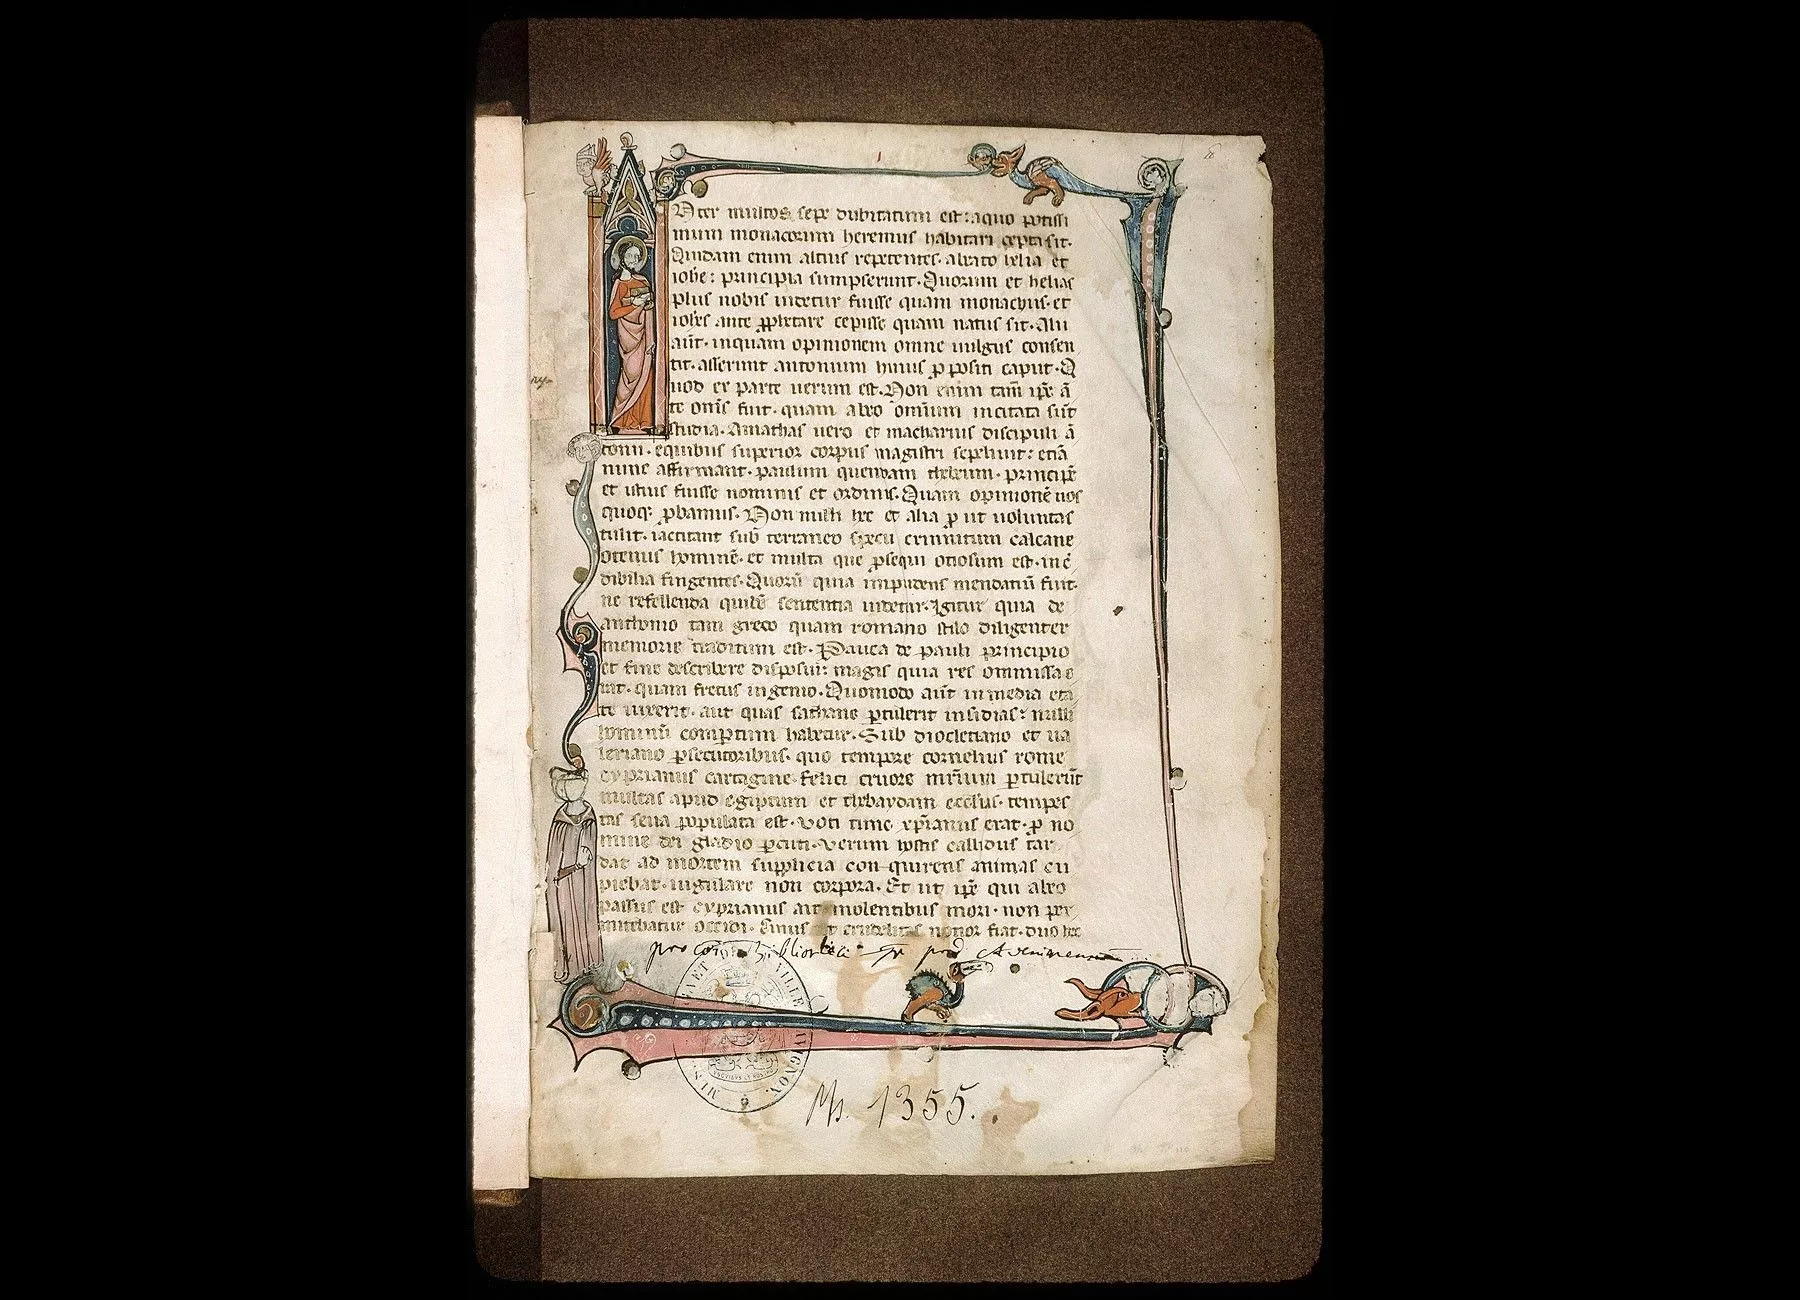 Nter multos sepe dubitatum est: a quo potissi
mum monacorum heremus habitari cepta sit.
Quidam enim altius repetentes. a beato helia et
iohe: principia sumpserunt. Quorum et helias
plus nobis uidetur fuisse quam monachus. et
iohes ante pphetare cepisse quam natus sit. Alii
aut. in quam opinionem omne uulgus consen
tit. asserunt antonium huius ppositi caput. Q
uod ex parte uerum est. Non enim tam ipe a
te oms fuit. quam ab eo omnium incitata sut
studia. Amathas uero et macharius discipuli a
tonii. e quibus superior corpus magistri sepeliuit: etia
nunc affirmant. paulum quendam thebeum. principe
et istius fuisse nominis et ordinis. Quam opinione nos
quoq; pbamus. Non nulli hec et alia put uoluntas
tulit. iactitant sub terraneo specu crinitum calcane
otenus homine. et multa que psequi otiosum est. inc
dibilia fingentes. Quoru quia impudens mendatiu fuit.
ne refellenda quide sententia uidetur. Igitur quia de
anthonio tam greco quam romano stilo diligenter
memorie traditum est. Pauca de pauli principio
et fine describere disposui: magis quia res ommissa e
rat. quam fretus ingenio. Quomodo aut in media eta
te uixerit. aut quas sathane ptulerit insidias: nulli
hominu compertum habetur. Sub diocletiano et ua
leriano psecutoribus. quo tempore cornelius rome
cyprianus cartagine. felici cruore mrium ptulerut
multas apud egiptum et thebaydam ecclias. tempes
tas seua populata est. Voti tunc xpianis erat. p no
mine dei gladio pcuti. Verum hostis callidus tar
da ad mortem supplicia conquirens animas cu
piebat. iugulare non corpora. Et ut ipe qui ab eo
passus est cyprianus ait. uolentibus mori. non per
mittebatur occidi. Cuius ut crudelitas notior fiat. duo hec
pro Bibliotheca Avenionensi
MUSEUM CALVET VILLE AVIGNON
Ms. 1355.